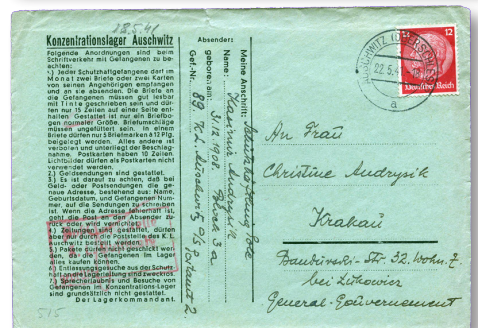 28.5.41
Konzentrationslager Auschwitz
Folgende Anordnungen sind beim
Schriftverkehr mit Gefangenen zu be-
achten:
1.) Jeder Schutzhaftgefangene darf im
Monat zwei Briefe oder zwei Karten
von seinen Angehörigen empfangen
und an sie absenden. Die Briefe an
die Gefangenen müssen gut lesbar
mit Tinte geschrieben sein und dür-
fen nur 15 Zeilen auf einer Seite ent-
halten. Gestattet ist nur ein Briefbo-
gen normaler Größe. Briefumschläge
müssen ungefüttert sein. In einem
Briefe dürfen nur 5 Briefmarken à 12 Pfg.
beigelegt werden. Alles andere ist
verboten und unterliegt der Beschlag-
nahme. Postkarten haben 10 Zeilen.
Lichtbilder dürfen als Postkarten nicht
verwendet werden.
2.) Geldsendungen sind gestattet.
3.) Es ist darauf zu achten, daß bei
Geld- oder Postsendungen die ge-
naue Adresse, bestehend aus: Name,
Geburtsdatum, und Gefangenen Num-
mer, auf die Sendungen zu schreiben
ist. Wenn die Adresse fehlerhaft ist,
geht die Post an den Absender zu-
rück oder wird vernichtet.
4.) Zeitungen sind gestattet, dürfen
aber nur durch die Poststelle des K. L.
Auschwitz bestellt werden.
5.) Pakete dürfen nicht geschickt wer-
den, da die Gefangenen im Lager
alles kaufen können.
6.) Entlassungsgesuche aus der Schutz-
haft an die Lagerleitung sind zwecklos.
7.) Sprecherlaubnis und Besuche von
Gefangenen im Konzentrations-Lager
sind grundsätzlich nicht gestattet.
Der Lagerkommandant.
515
Absender:
Meine Anschrift:
Name: Kasimir Andrysik
geboren: am: 3/12.1908. Block 3a
Gef.-Nr.: Postamt 2.
AUSCHWITZ (OBERSCHLES)
22.5.4
a
12
Deutsches Reich
An Frau
Christine Andrysik
Krakau
Str. 32. Wohn. 7
bei
General-Gouvernement